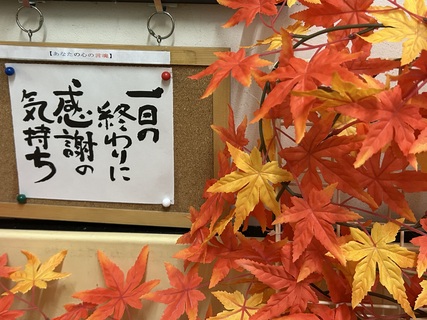 【あなたの心の言魂】
一日の
終わりに
感謝の
気持ち